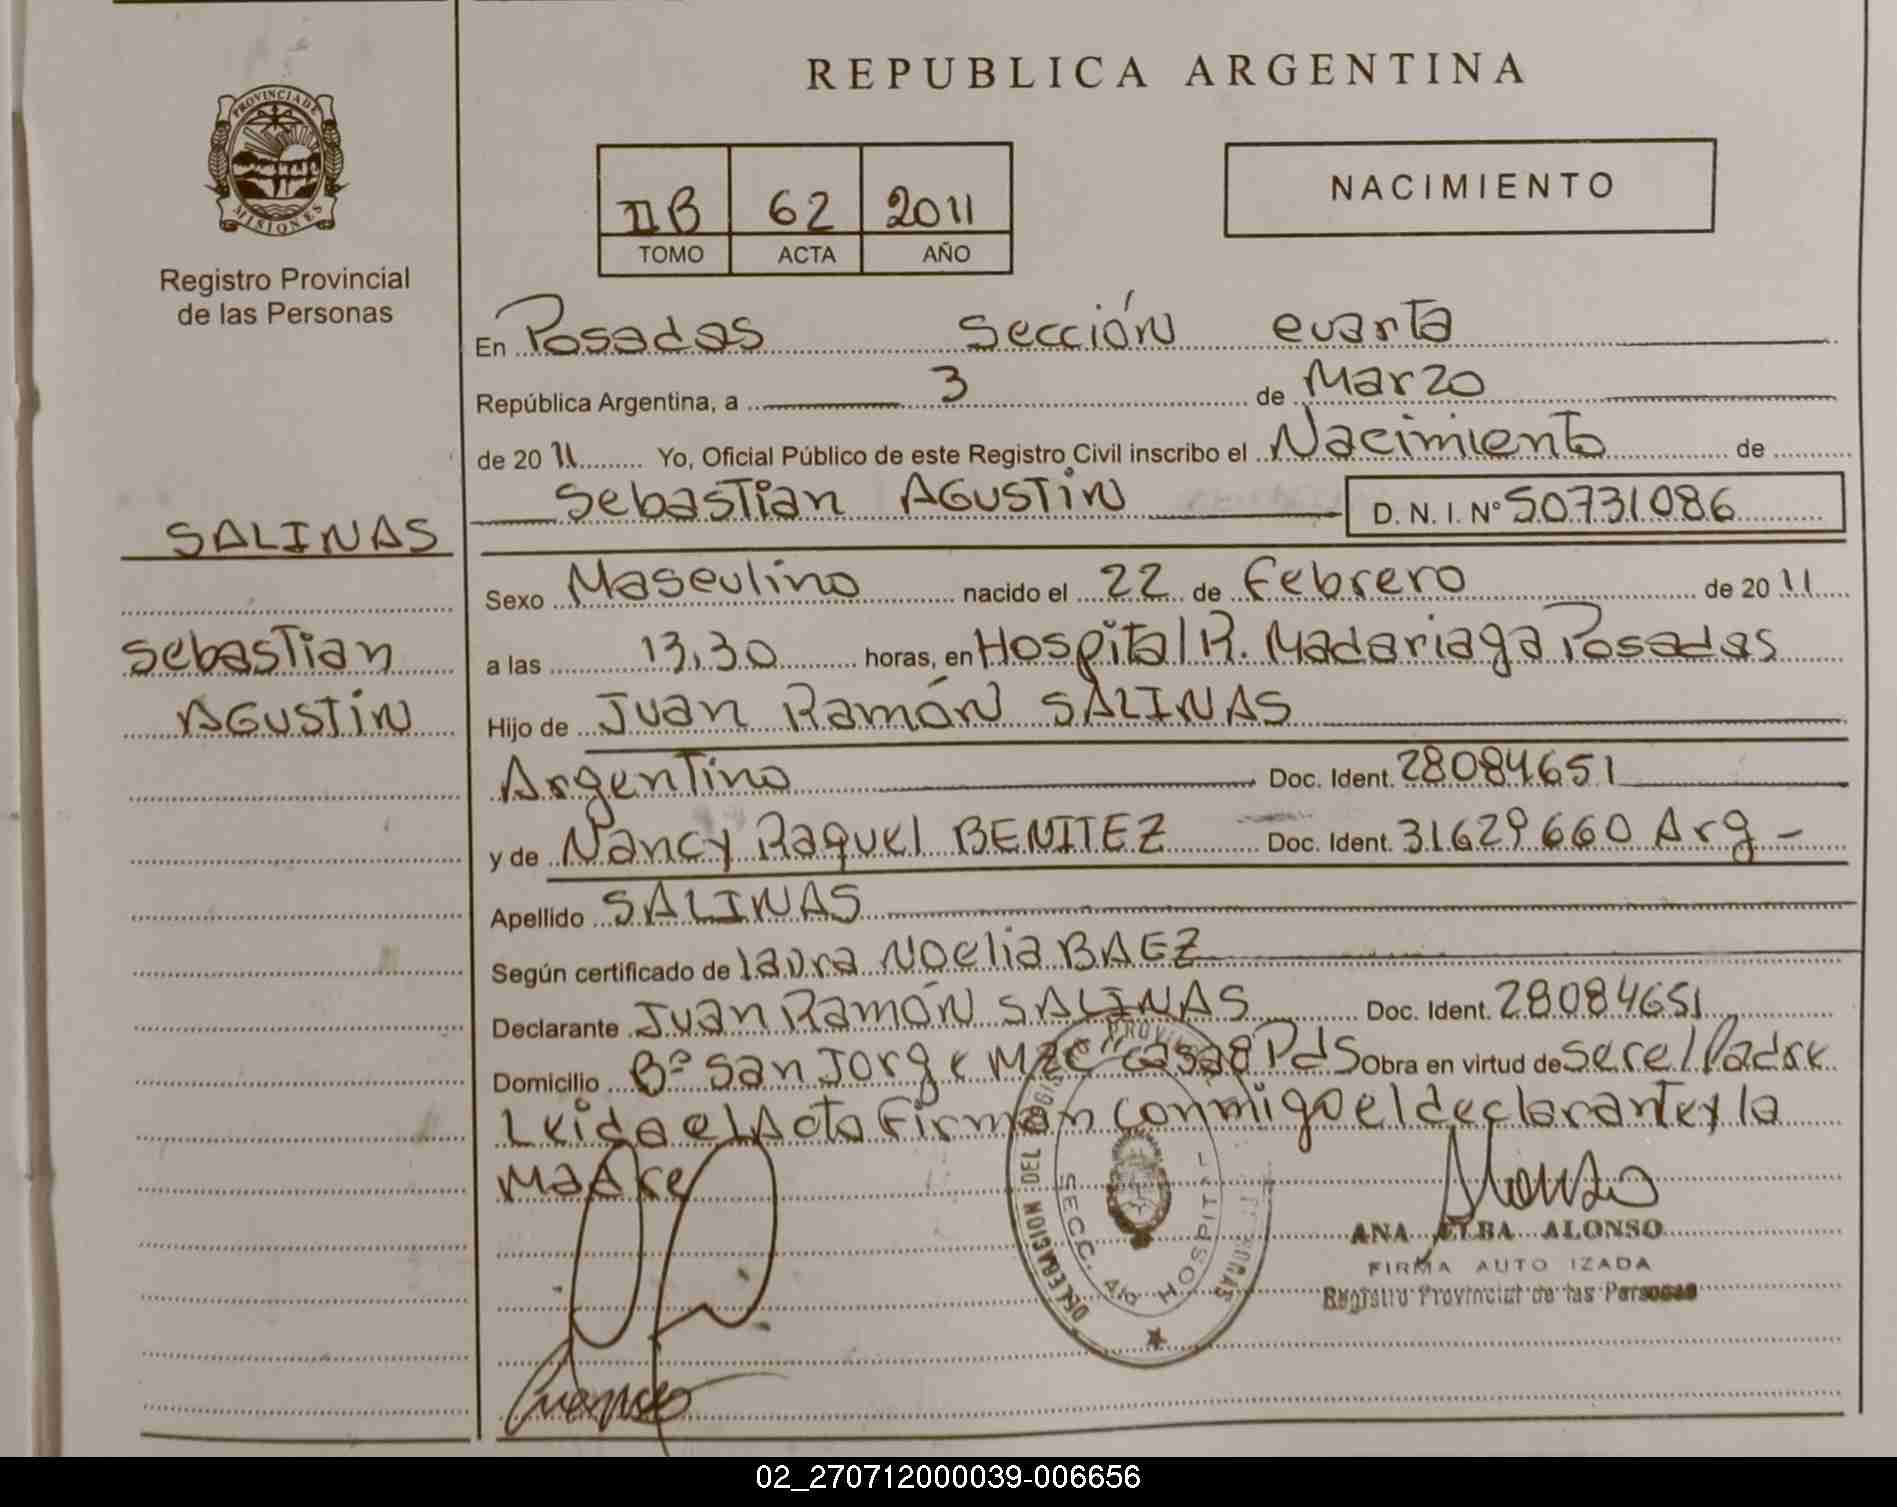 REPUBLICA ARGENTINA
PROVINCIA DE
MISIONES
Registro Provincial
de las Personas
II B 62 2011
TOMO ACTA AÑO
NACIMIENTO
En Posadas Sección cuarta
República Argentina, a 3 de Marzo
de 2011 Yo, Oficial Público de este Registro Civil inscribo el Nacimiento de
Sebastian AGUSTIN D. N. I. Nº 50731086
SALINAS
Sebastian
AGUSTIN
Sexo Masculino nacido el 22 de Febrero de 2011
a las 13,30 horas, en Hospital R. Madariaga Posadas
Hijo de Juan Ramón SALINAS
Argentino Doc. Ident. 28084651
y de Nancy Raquel BENITEZ Doc. Ident. 31629660 Arg -
Apellido SALINAS
Según certificado de laura Noelia BAEZ
Declarante Juan Ramón SALINAS Doc. Ident. 28084651
Domicilio Bº San Jorge Mz C" casa 8 Pds Obra en virtud de ser el Padre
Leida el Acta Firman conmigo el declarante y la
Madre
DELEGACION DEL
SECC. 4ta HOSPITAL
ANA ELBA ALONSO
FIRMA AUTO IZADA
Registro Provincial de las Personas
02_270712000039-006656